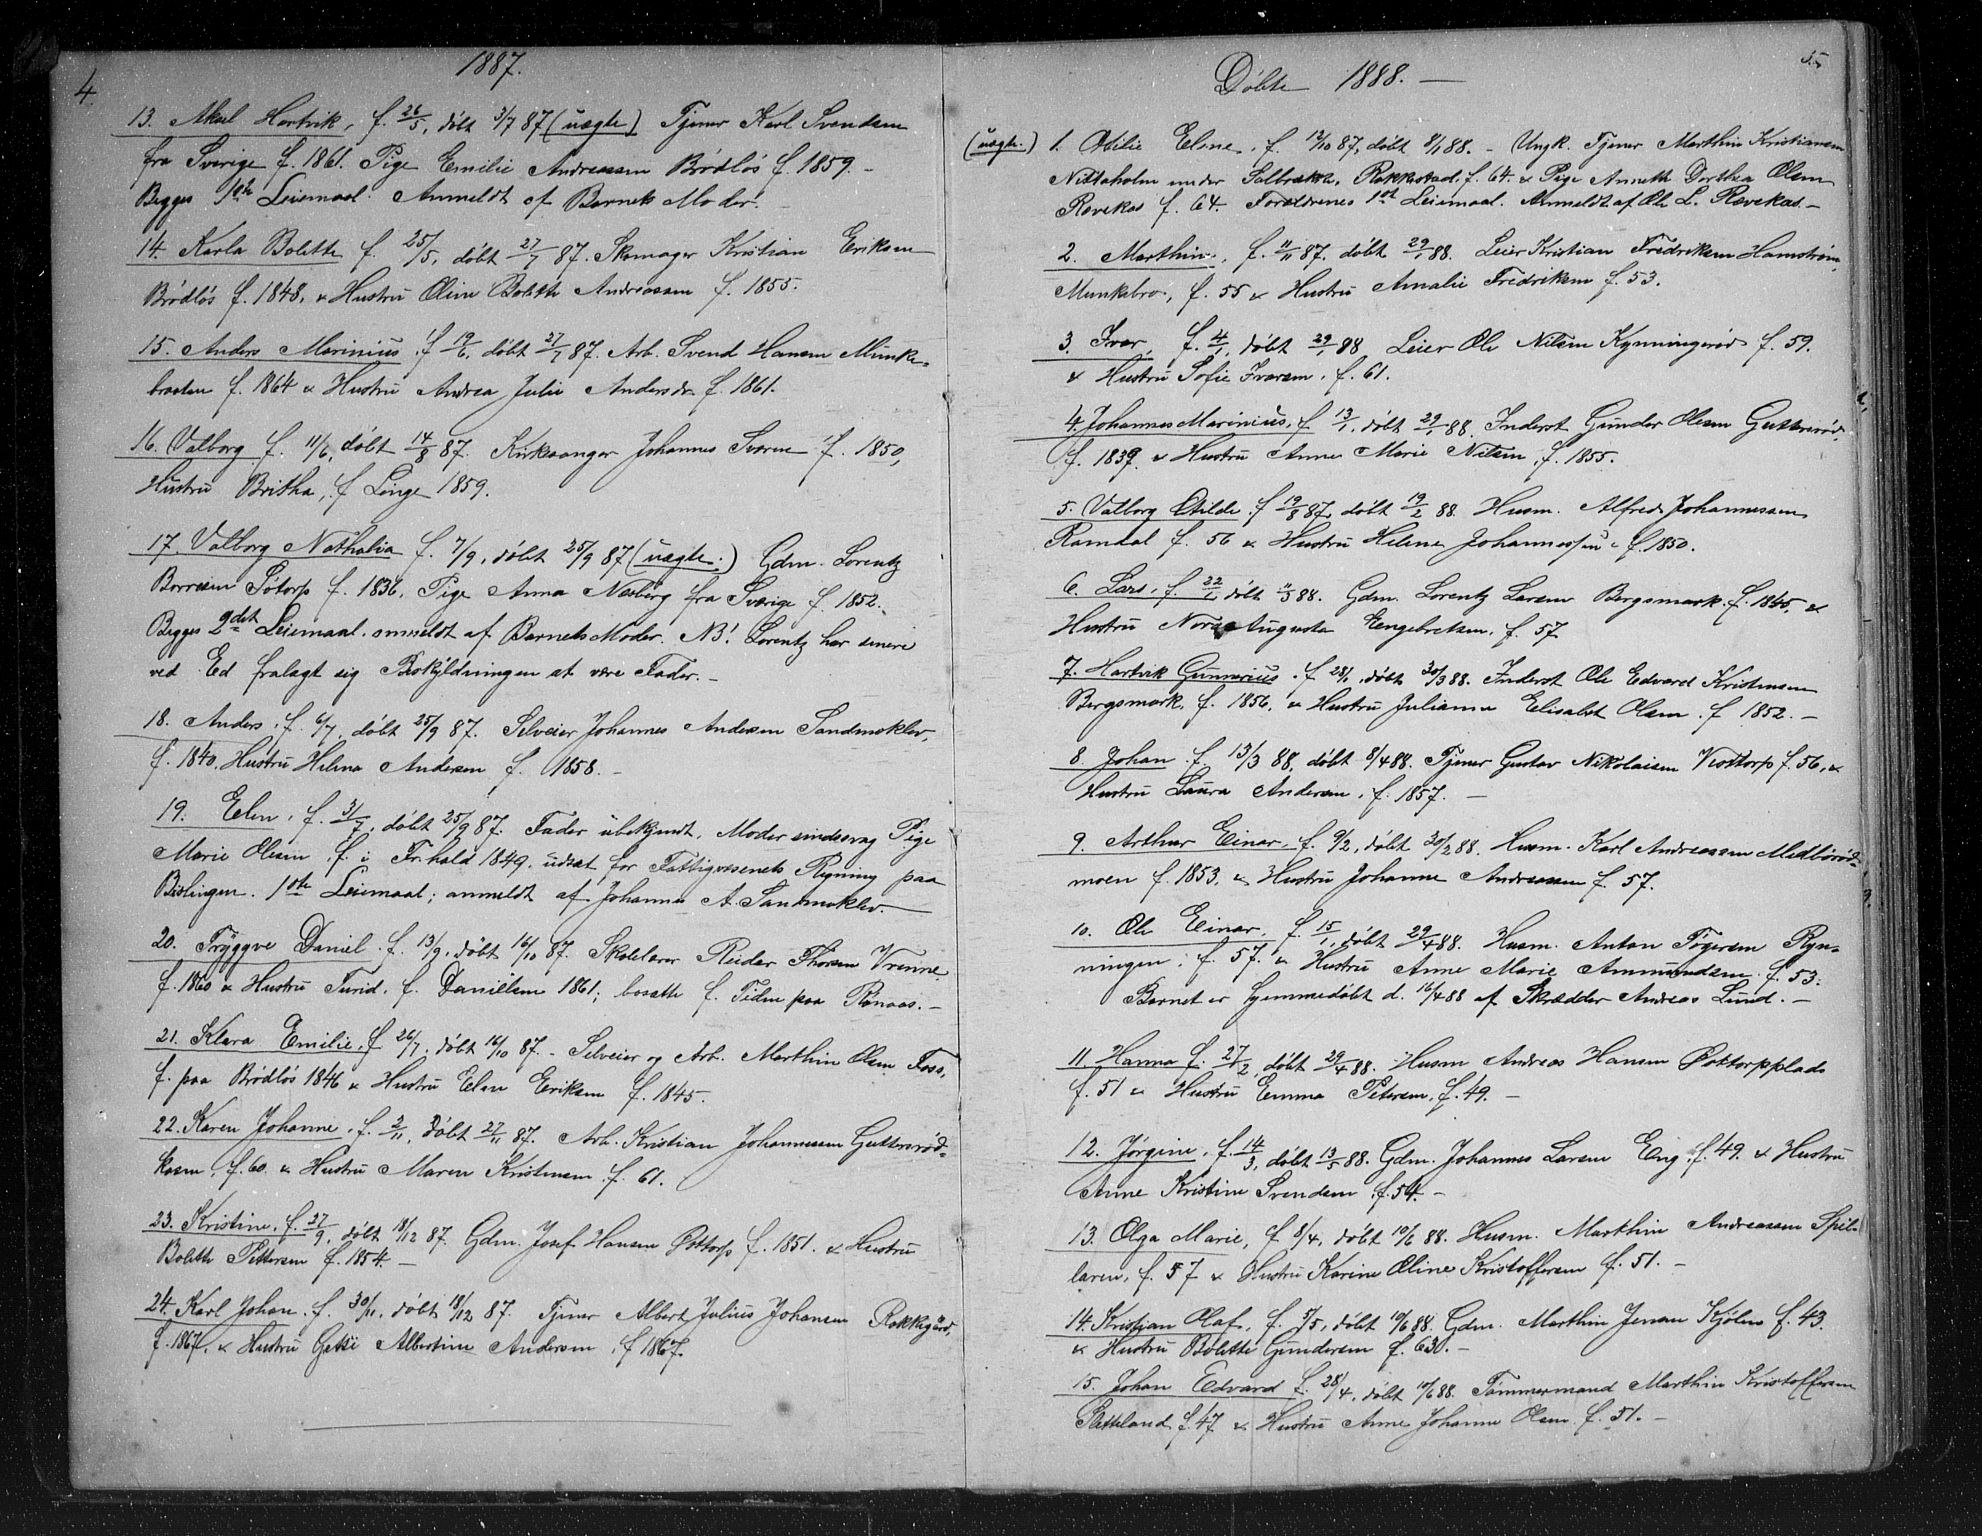 4.
1887.
13. Aksel Hartvik, f. 26/5, döbt 3/7 87 (uægte) Tjener Karl Svendsen
fra Sverige f. 1861. Pige Emilie Andreassen Brödlös f. 1859. -
Begges 1ste Leiemaal. Anmeldt af Barnets Moder.
14. Karla Bolette f. 25/5, döbt 27/7 87. Skomager Kristian Eriksen
Brödlös f. 1848, & Hustru Oline Bolette Andreassen f. 1855.
15. Anders Marinius f. 19/6, döbt 27/7 87. Arb. Svend Hansen Munke-
braaten f. 1864 & Hustru Andrea Julie Andersdr. f. 1861.
16. Valborg f. 11/6, döbt 14/8 87. Kirkesanger Johannes f. 1850,
Hustru Britha, f. Linge 1859.
17. Valborg Nathalia f. 7/9, döbt 25/9 87 (uægte.) Gdm. Lorentz
Borresen Sötorp f. 1836, Pige Anna Nesberg fra Sverige f. 1852.
Begges 2det Leiemaal. anmeldt af Barnets Moder. NB! Lorentz har senere
ved Ed fralagt sig Beskyldningen at være Fader. -
18. Anders. f. 6/7, döbt 25/9 87. Selveier Johannes Andersen Sandmoklev,
f. 1840. Hustru Helena Andersen f. 1858. -
19. Elen, f. 31/7, döbt 25/9 87. Fader ubekjendt, Moder sindssvag Pige
Marie Olsen f. i Fr.hald 1849, udsat for Fattigvæsenets Regning paa
Bislingen. 1ste Leiemaal; anmeldt af Johannes A. Sandmoklev.
20. Tryggve Daniel f. 13/9, döbt 16/10 87. Skolelærer Reidar Thorsen Vrenne
f. 1860 & Hustru Turid, f. Danielsen 1861; bosatte f. Tiden paa Rönaas. -
21. Klara Emilie, f. 26/7, döbt 16/10 87. - Selveier og Arb. Marthin Olsen Foss,
f. paa Brödlös 1846 & Hustru Elen Eriksen f. 1845.
22. Karen Johanne. f. 2/11, döbt 27/11 87. Arb. Kristian Johannessen Guttersröd-
kasen, f. 60 & Hustru Maren Kristensen f. 61.
23. Kristine, f. 27/9, döbt 18/12 87. Gdm. Josef Hansen Ottorp f. 1851. & Hustru
Bolette Pettersen f. 1854. -
24. Karl Johan. f. 30/11, döbt 18/12 87. Tjener Albert Julius Johansen Rakkegård,
f. 1867, & Hustru Albertine Andersen, f. 1867.
55
Döbte 1888. -
(uægte.) 1. Otilie Eline. f. 12/10 87, döbt 8/1 88. - Ungk. Tjener Marthin Kristiansen
under Rakkestad f. 64. & Pige Anneth Dorthea Olsen
Rævekas f. 64. Forældrenes 1ste Leiemaal. Anmeldt af Ole L. Rævekas. -
2. Marthin, f. 11/11 87, döbt 29/1 88. Leier Kristian Fredriksen Hamström,
Munkebro, f. 55 & Hustru Amalie Fredriksen f. 53.
3. Ivar, f. 4/1, döbt 29/1 88 Leier Ole Nilsen Kynningsrød f. 59.
& Hustru Sofie Ivarsen, f. 61.
4. Johannes Marinius, f. 13/1, döbt 29/1 88. Inderst Gunder Olsen Guttersröd,
f. 1839. & Hustru Anne Marie Nilsen, f. 1855.
5. Valborg Otilde. f. 19/8 87, döbt 19/2 88. Husm. Alfred Johannessen
Ramdal f. 56 & Hustru Helene Johannessen. f. 1850.
6. Lars, f. 22/1 döbt 11/3 88. Gdm. Lorentz Larsen Bergsmark. f. 1845, &
Hustru Nora Augusta Engebretsen, f. 57
7. Hartvik Gunnerius. f. 28/1, döbt 30/3 88. Inderst Ole Edvard Kristensen
Bergsmark, f. 1856, & Hustru Julianne Elisabet Olsen. f. 1852. -
8. Johan f. 13/3 88, döbt 8/4 88. Tjener Gustav Nikolaisen Vestorp f. 56, &
Hustru Laura Andersen, f. 1857. -
9. Arthur Einar, f. 9/2, döbt 30/3 88. Husm. Karl Andreassen Midböröd-
moen f. 1853, & Hustru Johanne Andreassen f. 57.
10. Ole Einar, f. 15/1, döbt 29/4 88. Husm. Anton Tögersen Ryn-
ningen, f. 57. & Hustru Anne Marie Ammundsen f. 53.
Barnet er hjemmedöbt d. 16/4 88 af Skrædder Andreas Lund. -
11. Hanna f. 27/2, döbt 29/4 88. Husm Andreas Hansen Ottorpplads
f. 51 & Hustru Emma Petersen, f. 49. -
12. Jörgine, f. 14/3, döbt 13/5 88. Gdm. Johannes Larsen Eng. f. 49. & Hustru
Anne Kristine Svendsen f. 54. -
13. Olga Marie, f 8/4, döbt 10/6 88. Husm. Marthin Andreassen Spil-
laren, f. 57 & Hustru Karine Oline Kristoffersen f. 51. -
14. Kristian Olaf, f. 5/5, döbt 10/6 88. Gdm. Marthin Jensen Kjölen f. 43.
& Hustru Bolette Gundersen f. 50. -
15. Johan Edvard f. 28/4, döbt 10/6 88. Tømmermand Marthin Kristoffersen
f. 47 & Hustru Anne Johanne Olsen f. 51. -